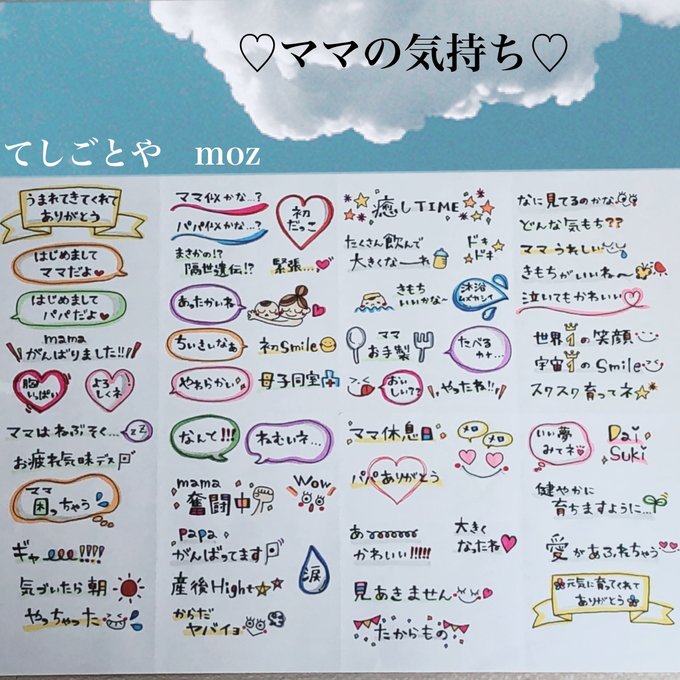 ♡ママの気持ち♡
てしごとや moz
うまれてきてくれて
ありがとう
はじめまして
ママだよ
はじめまして
パパだよ
mama
がんばりました!!
胸
いっぱい
よろ
しくネ
ママはねぶそく…
zz
お疲れ気味デス
ママ
困っちゃう
ギャー!!!!
気づいたら朝
やっちゃった
ママ似かな…?
パパ似かな…?
初
だっこ
まさかの!?
隔世遺伝!?
緊張…
あったかいね
ちいさいなぁ
初Smile
やわらかい
母子同室
なんと!!!
ねむいネ…
mama
奮闘中
Wow
papa
がんばってます
涙
産後High
からだ
ヤバイョ
癒しTIME
たくさん飲んで
大きくなーれ
ドキ
ドキ
きもち
いいかな~
沐浴
ムズカシイ
ママ
お手製
たべる
かナ…
おい
しい??
やったね!!
ママ休息日
メロ
メロ
パパありがとう
あー
かわいい!!!!!
大きく
なったね
見あきません
たからもの
なに見てるのかな
どんな気もち??
ママうれしい
きもちがいいね~
泣いてもかわいい
世界1の笑顔
宇宙1のSmile
スクスク育ってネ
いい夢
みてネ
Dai
Suki
健やかに
育ちますように…
愛があふれちゃう
元気に育ってくれて
ありがとう